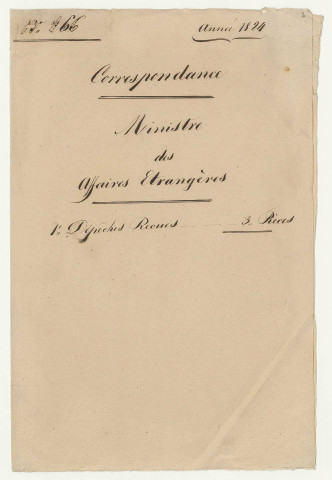 266 Année 1824
Correspondance
Ministre
des
Affaires Etrangères
1º Dépêches Recues 3 Pièces